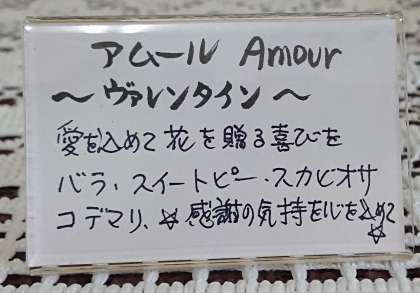 アムール Amour
～ヴァレンタイン～
愛を込めて花を贈る喜びを
バラ、スイートピー、スカビオサ
コデマリ、☆感謝の気持を心を込めて☆